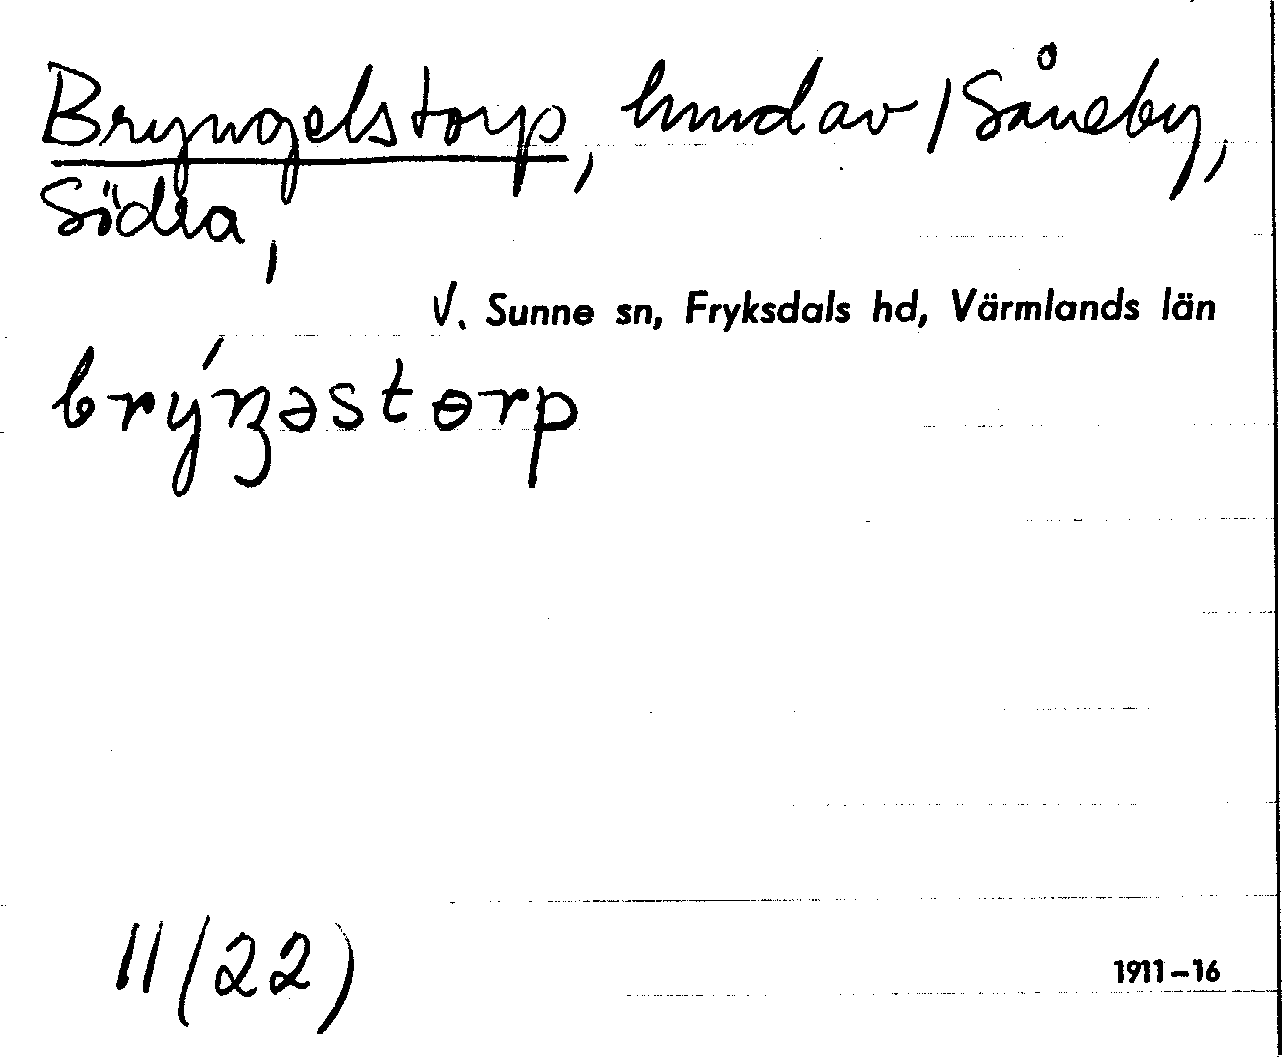 Bryngelstorp, hmd av 1 Såneby,
Södra,
V. Sunne sn, Fryksdals hd, Värmlands län
brýŋəstɵrp
11 (22)
1911–16